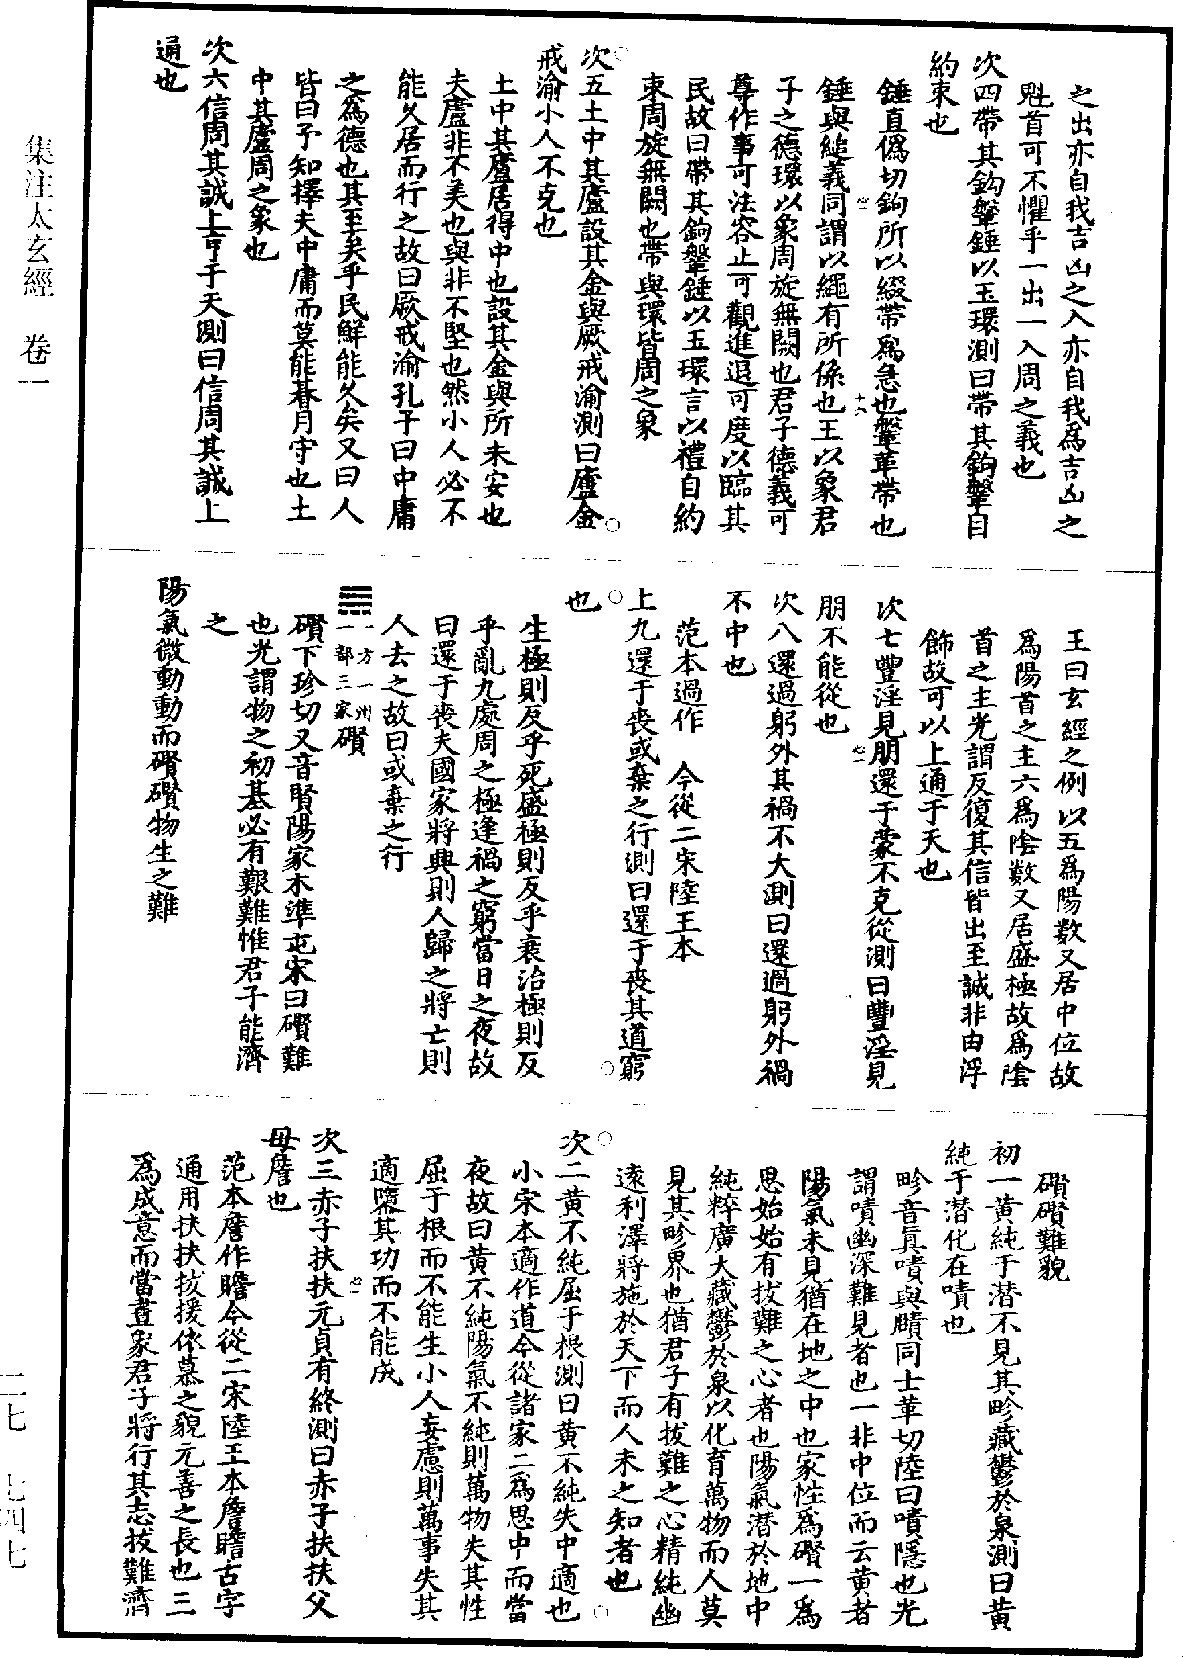 之出亦自我吉凶之入亦自我爲吉凶之
兠首可不懼乎一出一入周之義也
次四帶其鈎鞶錘以玉環測曰帶其鈎鞶自
約束也
錘直僞切鈎所以綴帶爲急也鞶革帶也
錘與縋義同謂以繩有所係也王以象君
子之德環以象周旋無闕也君子德義可
尊作事可法容止可觀進退可度以臨其
民故曰帶其鈎鞶錘以玉環言以禮自約
束周旋無闕也帶與環皆周之象
次五土中其廬設其金輿厥戒渝測曰廬金
戒渝小人不克也
土中其廬居得中也設其金輿所未安也
夫廬非不美也輿非不堅也然小人必不
能久居而行之故曰厥戒渝孔子曰中庸
之爲德也其至矣乎民鮮能久矣又曰人
皆曰予知擇夫中庸而莫能朞月守也土
中其廬周之象也
次六信周其誠上亨于天測曰信周其誠上
通也
王曰玄經之例以五爲陽數又居中位故
爲陽首之主六爲陰數又居盛極故爲陰
首之主光謂反復其信皆出至誠非由浮
飾故可以上通于天也
次七豐淫見朋還于蒙不克從測曰豐淫見
朋不能從也
次八還過躬外其禍不大測曰還過躬外禍
不中也
范本過作 今從二宋陸王本
上九還于喪或棄之行測曰還于喪其道窮
也
生極則反乎死盛極則反乎衰治極則反
乎亂九處周之極逢禍之窮當日之夜故
曰還于喪夫國家將興則人歸之將亡則
人去之故曰或棄之行
一方一州
一部三家
礥
礥下珍切又音賢陽家木準屯宋曰礥難
也光謂物之初基必有艱難惟君子能濟
之
陽氣微動動而礥礥物生之難
礥礥難貌
初一黃純于潛不見其畛藏鬱於泉測曰黃
純于潛化在嘖也
畛音眞嘖與賾同士革切陸曰嘖隱也光
謂嘖幽深難見者也一非中位而云黃者
陽氣未見猶在地之中也家性爲礥一爲
思始始有拔難之心者也陽氣潛於地中
純粹廣大藏鬱於泉以化育萬物而人莫
見其畛界也猶君子有拔難之心精純幽
遠利澤將施於天下而人未之知者也
次二黃不純屈于根測曰黃不純失中適也
小宋本適作道今從諸家二爲思中而當
夜故曰黃不純陽氣不純則萬物失其性
屈于根而不能生小人妄慮則萬事失其
適隳其功而不能成
次三赤子扶扶元貞有終測曰赤子扶扶父
母詹也
范本詹作瞻今從二宋陸王本詹瞻古字
通用扶扶拔援依慕之貌元善之長也三
爲成意而當晝象君子將行其志拔難濟
集注太玄經 卷一
二七 七四七